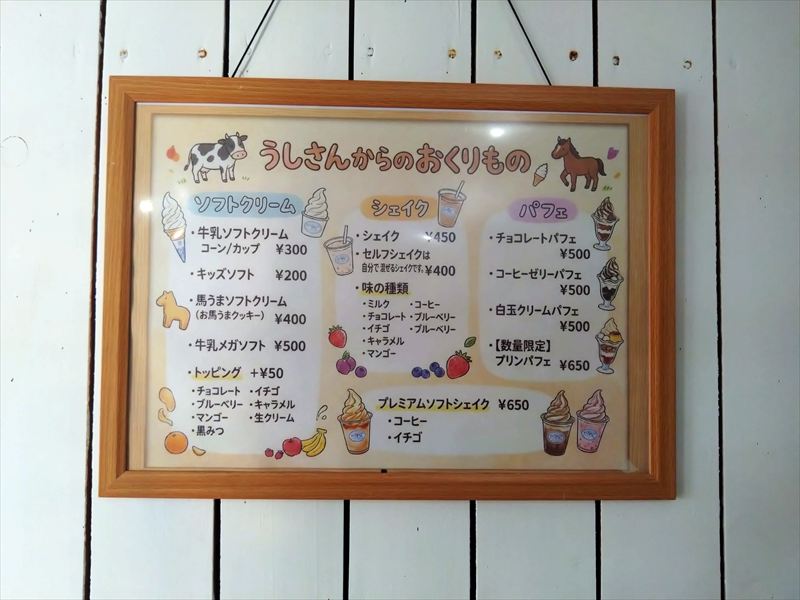 うしさんからのおくりもの
ソフトクリーム
・牛乳ソフトクリーム
コーン/カップ ¥300
・キッズソフト ¥200
・馬うまソフトクリーム
(お馬うまクッキー) ¥400
・牛乳メガソフト ¥500
・トッピング +¥50
・チョコレート ・イチゴ
・ブルーベリー ・キャラメル
・マンゴー ・生クリーム
・黒みつ
シェイク
・シェイク ¥450
・セルフシェイクは
自分で混ぜるシェイクです。 ¥400
・味の種類
・ミルク ・コーヒー
・チョコレート ・ブルーベリー
・イチゴ ・ブルーベリー
・キャラメル
・マンゴー
パフェ
・チョコレートパフェ
¥500
・コーヒーゼリーパフェ
¥500
・白玉クリームパフェ
¥500
・【数量限定】
プリンパフェ ¥650
プレミアムソフトシェイク ¥650
・コーヒー
・イチゴ